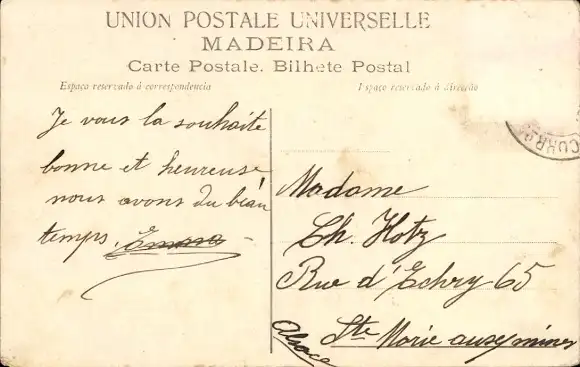 UNION POSTALE UNIVERSELLE
MADEIRA
Carte Postale. Bilhete Postal
Espaço reservado á correspondencia
Espaço reservado á direcção
Je vous la souhaite
bonne et heureuse,
nous avons du beau
temps.
Madame
Ch. Hotz
Rue d'Echry 65
Ste Marie aus mines
Alsace